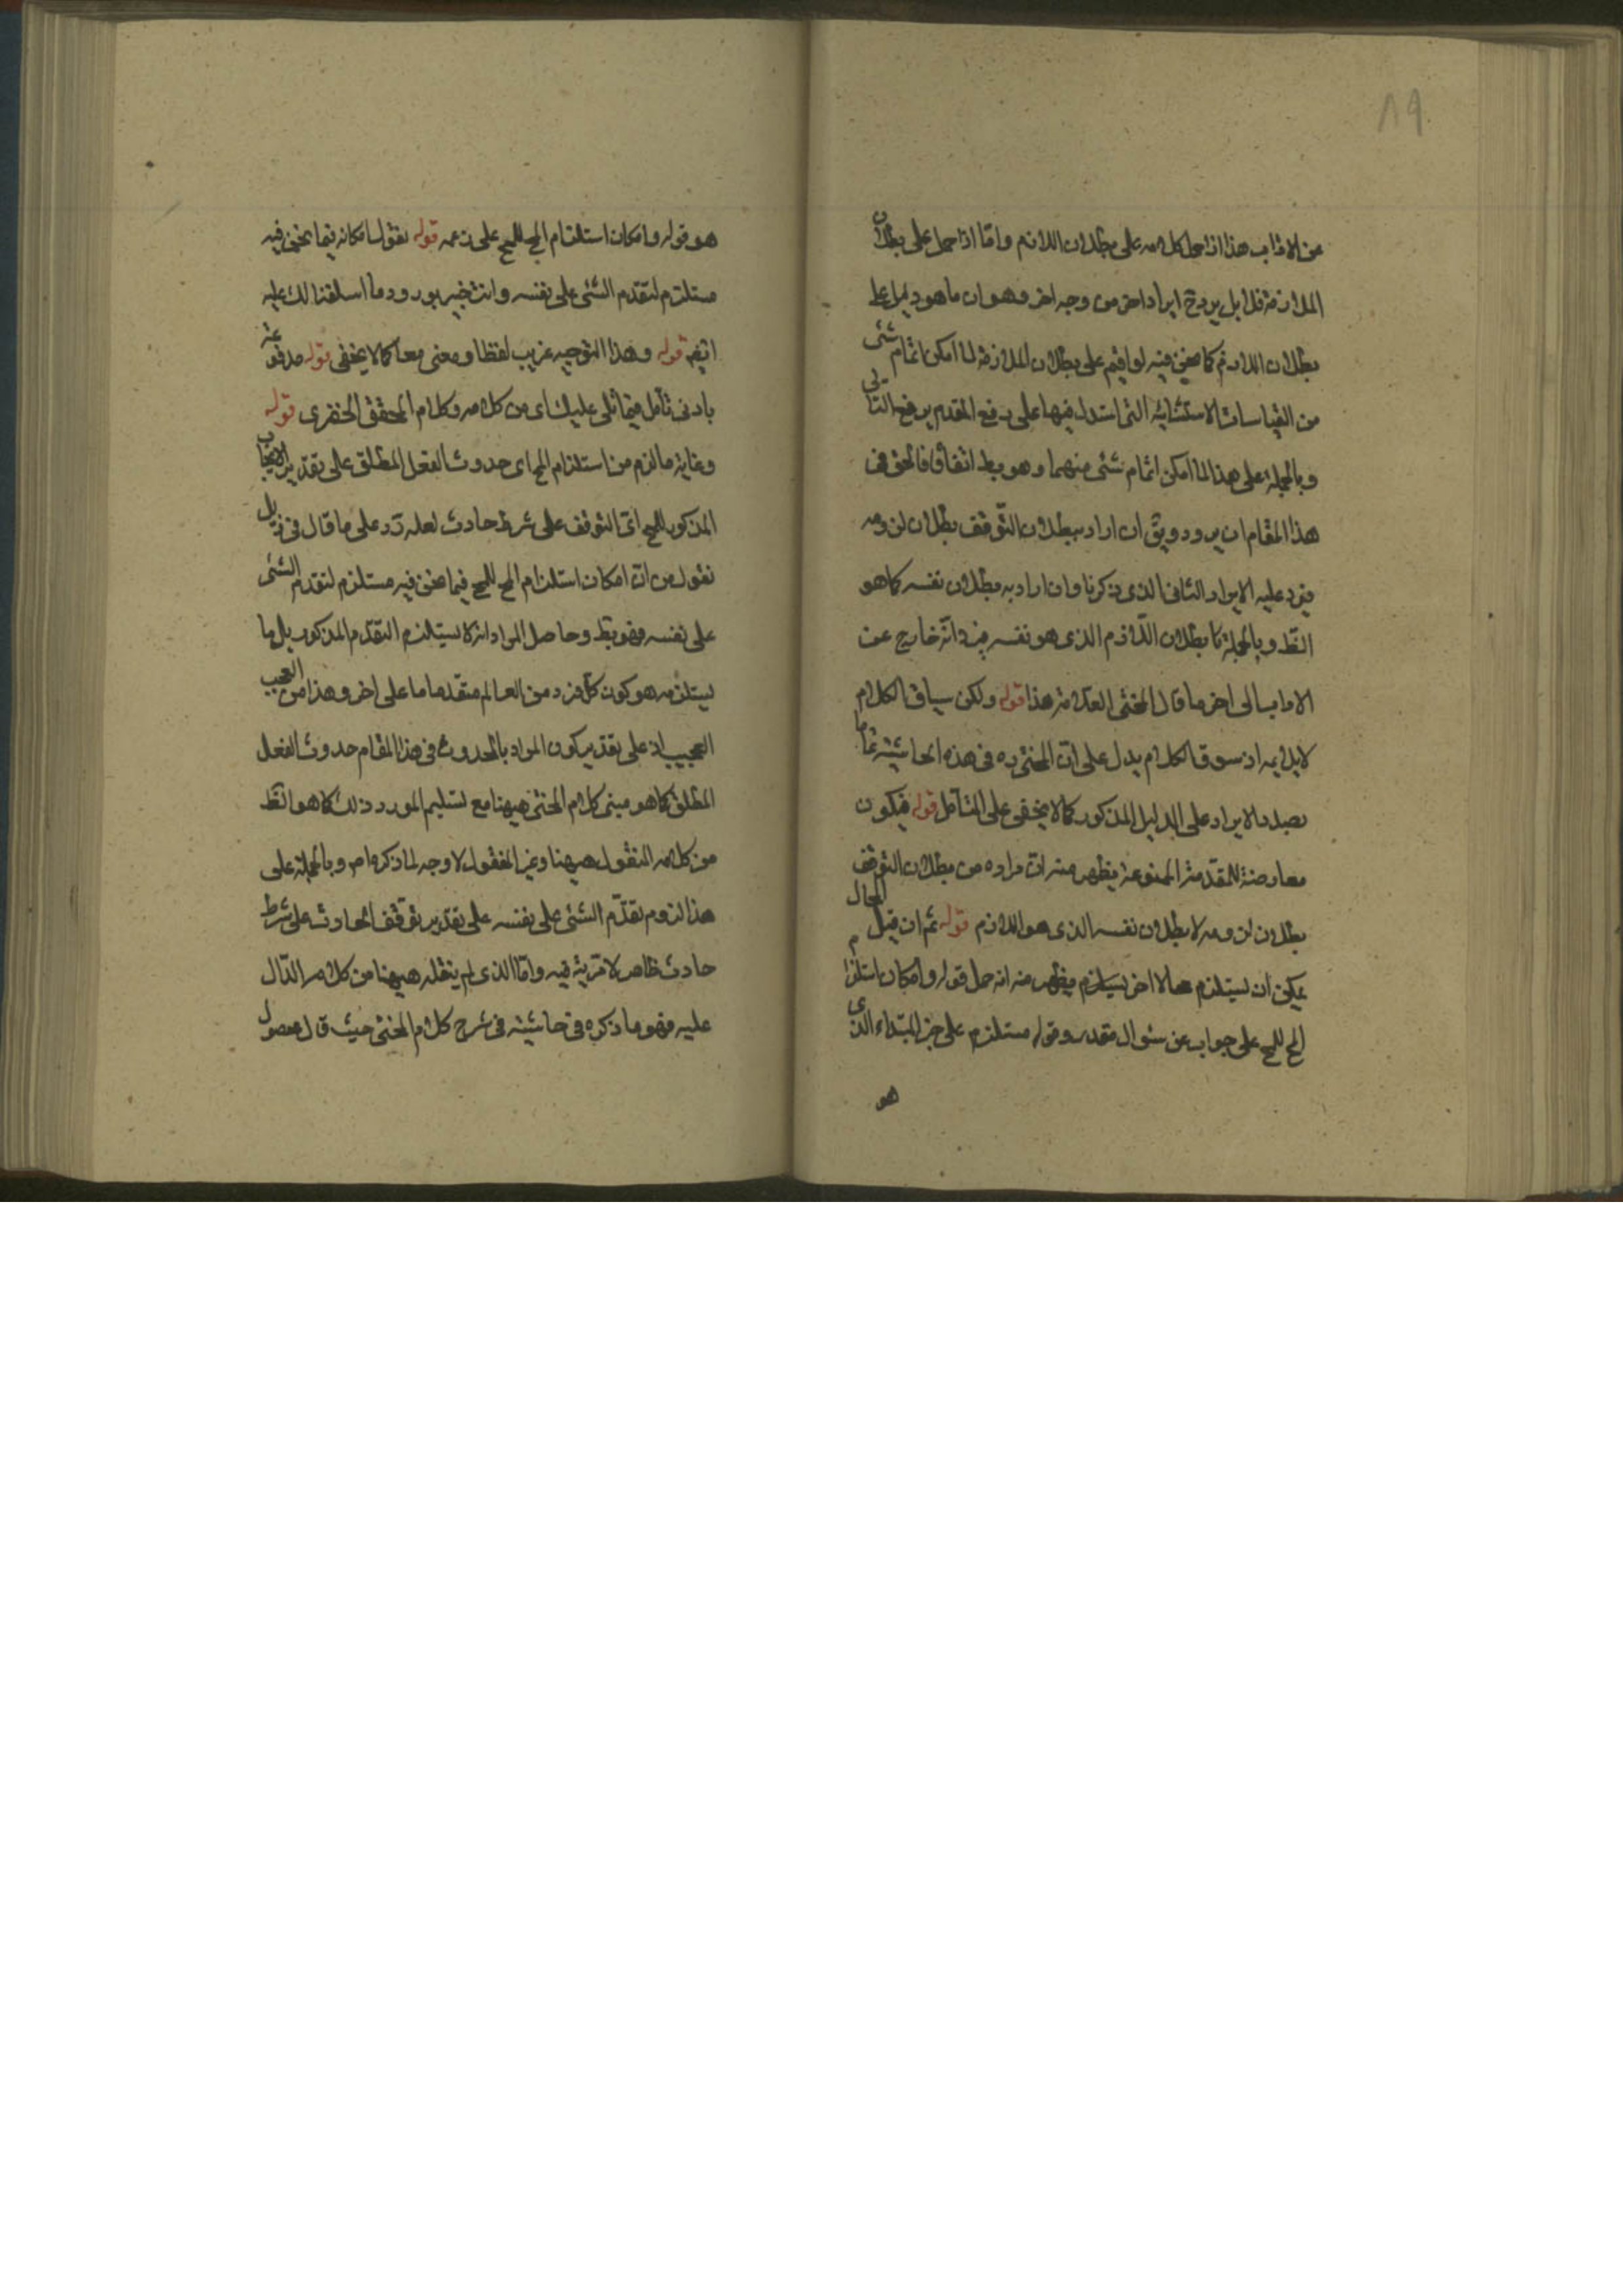 ٨٩
عن الاداب هذا اذا حمل كلامه على بطلان اللازم واما اذا حمل على بطلان
الملازمة فلا بل يرد ح ايراد اخر من وجه اخر وهو ان ما هو دليل على
بطلان اللازم كما نحن فيه لو اقيم على بطلان الملازمة لما امكن اتمام شئ
من القياسات الاستثنائية التى استدل فيها على رفع المقدم برفع التالى
وبالجملة على هذا لما امكن اتمام شئ منهما وهو بط اتفاقا فالحق فى
هذا المقام ان يردد ويق ان اراد ببطلان التوقف بطلان لزومه
فيرد عليه الايراد الثانى الذى ذكرنا وان اراد به بطلان نفسه كما هو
الظ وبالجملة بطلان اللازم الذى هو نفسه فيرد انه خارج عن
الاداب الى اخر ما قال المحشى العلامة هذا قوله ولكن سياق الكلام
لا يلايمه اذ سوق الكلام يدل على ان المحشى ره فى هذه الحاشية تماما
بصدد الايراد على الدليل المذكور كما لا يخفى على المتامل قوله فيكون
معارضة للمقدمة الممنوعة فيظهر منه ان مراده من بطلان التوقف
بطلان لزومه لا بطلان نفسه الذى هو اللازم قوله ثم ان قيل المحال
يمكن ان يستلزم محالا اخر يستلزم فيظهر منه انه حمل قوله وامكان استلزام
المح للمح على جواب عن سئوال مقدر وقوله مستلزم على خبر المبتداء الذى
هو
هو قوله وامكان استلزام المح للمح على زعمه قوله نقول امكانه فيما نحن فيه
مستلزم لتقدم الشئ على نفسه وانت خبير بورود ما اسلفنا لك عليه
ايضا قوله وهذا التوجيه غريب لفظا ومعنى معا كما لا يخفى قوله مدفوعة
بادنى تامل فيما تلى عليك اى من كلامه وكلام المحقق الخفرى قوله
وغاية ما لزم من استلزام المح اى حدوث الفعل المطلق على تقدير الايجاب
المذكور للمح اى التوقف على شرط حادث لعله رد على ما قال فى ذيل
نقول من ان امكان استلزام المح للمح فيما نحن فيه مستلزم لتقدم الشئ
على نفسه فهو بط وحاصل المراد انه لا يستلزم التقدم المذكور بل ما
يستلزمه هو كون كل فرد من العالم متقدما ما على اخر وهذا من العجب
العجيب اذ على تقدير كون المراد بالحدوث فى هذا المقام حدوث الفعل
المطلق كما هو مبنى كلام المحشى هيهنا مع تسليم المورد ذلك كما هو الظ
من كلامه المنقول هيهنا وغير المنقول لا وجه لما ذكره اصلا وبالجملة على
هذا لزوم تقدم الشئ على نفسه على تقدير توقف الحادث على شرط
حادث ظاهر لا مرية فيه واما الذى لم ينقله هيهنا من كلامه الدال
عليه فهو ما ذكره فى حاشيته فى شرح كلام المحشى حيث قال محصول